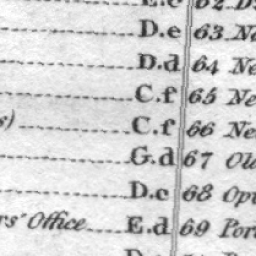 E.c 62 D
D.e 63 No
D.d 64 Ne
C.f 65 Ne
s) C.f 66 Ne
G.d 67 Old
D.c 68 Opt
rs' Office E.d 69 Port